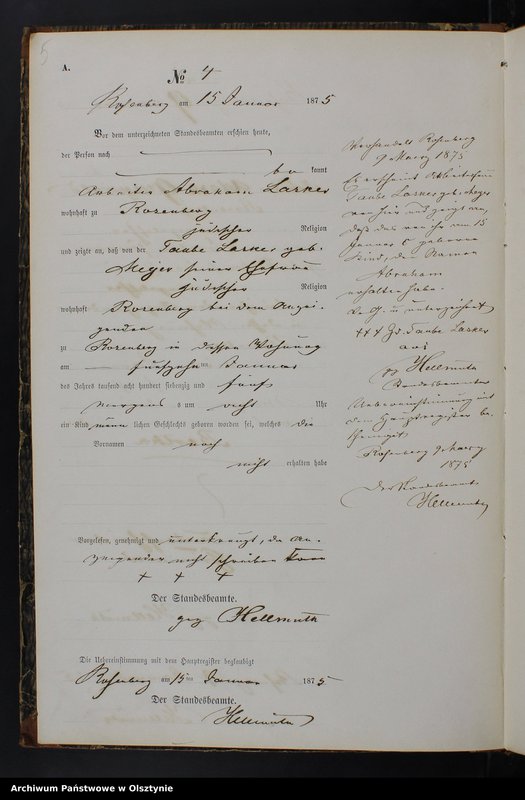 5
A.
No 4
Rosenberg am 15 Januar 1875
Vor dem unterzeichneten Standesbeamten erschien heute,
der Person nach
bekannt
Arbeiter Abraham Larker
wohnhaft zu Rosenberg
jüdischer Religion
und zeigte an, daß von der Taube Larker geb.
Meyer seiner Ehefrau
jüdischer Religion
wohnhaft Rosenberg bei dem Anzei-
genden
zu Rosenberg in dessen Wohnung
am fünfzehnten Januar
des Jahres tausend acht hundert siebenzig und fünf
Morgens um acht Uhr
ein Kind männlichen Geschlechts geboren worden sei, welches die
Vornamen noch
nicht erhalten habe
Vorgelesen, genehmigt und unterkreuzt, da An-
zeigender nicht schreiben kann
+ + +
Der Standesbeamte.
gez Hellmuth
Die Uebereinstimmung mit dem Hauptregister beglaubigt
Rosenberg am 15ten Januar 1875
Der Standesbeamte.
Hellmuth
Verhandelt Rosenberg
9 Maerz 1875
Es erscheint Arbeiterfrau
Taube Larker geb. Meyer
von hier und zeigt an,
daß das von ihr am 15
Januar geborene
Kind, den Namen
Abraham
erhalten habe.
v. g. u. unterzeichnet
+++ Taube Larker
gez Hellmuth
Standesbeamter
Uebereinstimmung mit
dem Hauptregister be-
scheinigt
Rosenberg 9 Maerz
1875
Der Standesbeamte.
Hellmuth
Archiwum Państwowe w Olsztynie